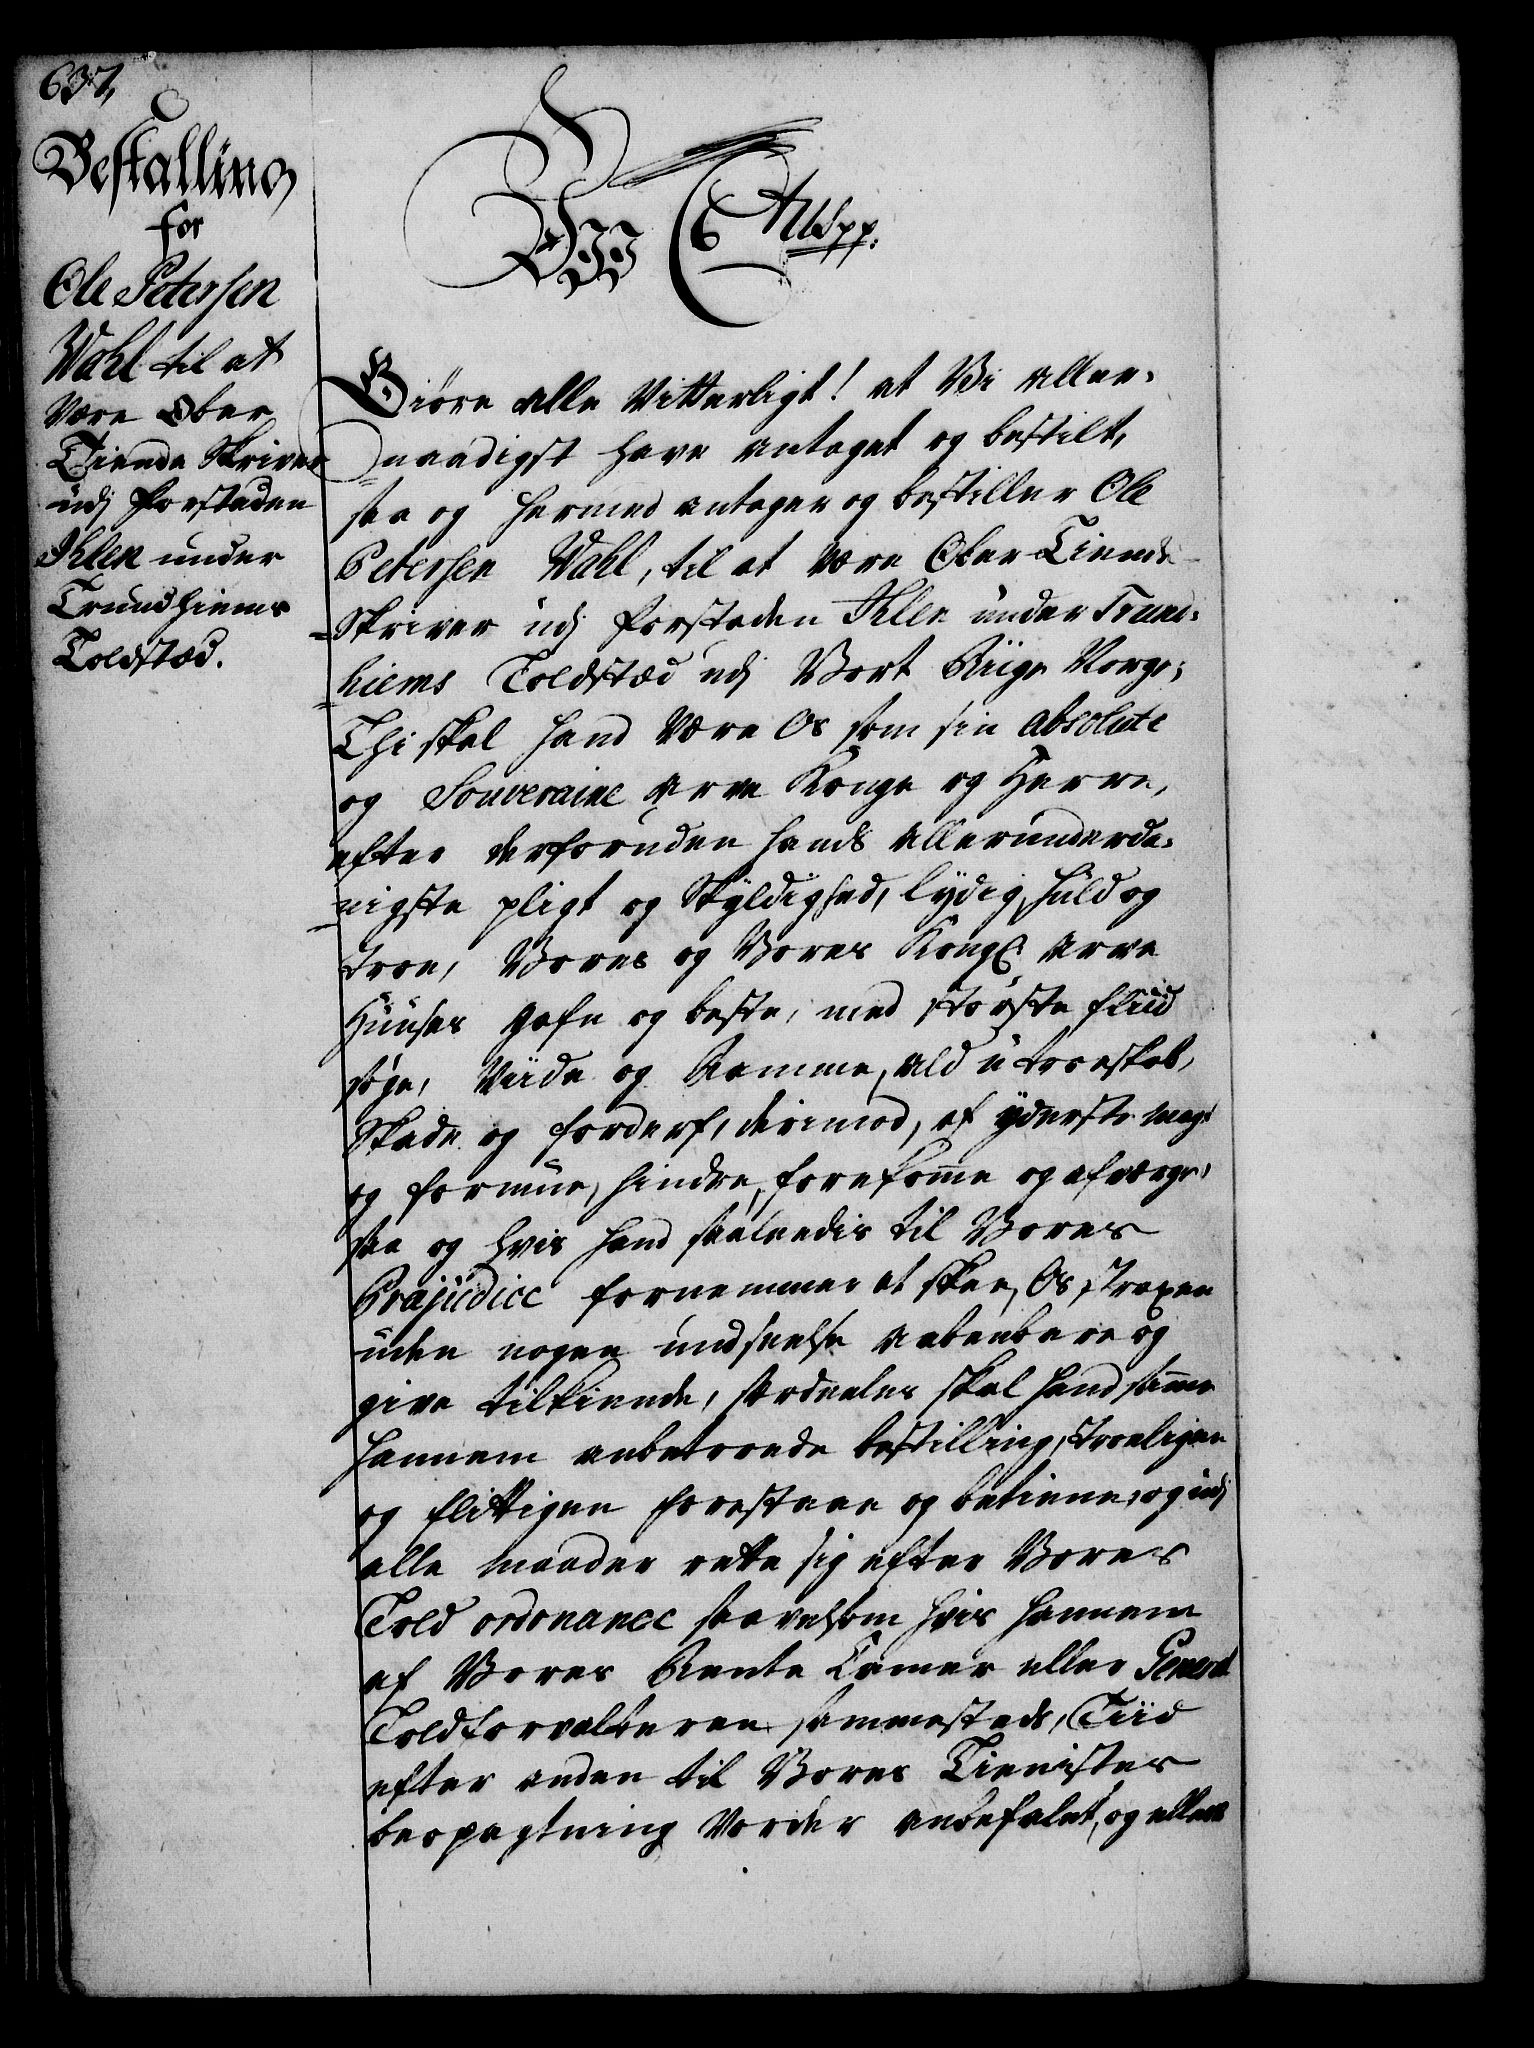 637,
Bestalling
for
Ole Petersen
Wahl til at
være Ober
Tiende Skriver
udj Forstaden
Ihlen under
Trundhiems
Toldstæd.
Giöre alle Vitterligt! at Vi aller-
naadigst have antaget og bestilt,
saa og hermed antager og bestiller Ole
Petersen Wahl, til at være Ober Tiende
Skriver udj Forstaden Ihlen under Trund-
hiems Toldstæd udj Vort Riige Norge;
Thi skal hand være Os som sin absolute
og Souveraine Arve Konge og Herre,
efter derforuden hands allerunderda-
nigste pligt og Skyldighed, lydig, huld og
troe, Vores og Vores Kongl. Arve
Huuses gafn og beste, med störste fliid
söge, Viide og Ramme, ald utroeskab,
Skade og forderf, derimod, af yderste magt
og formue, hindre, forekome og afværge,
saa og hvis hand saaledis til Vores
Præjudice fornemmer at skee, Os straxen
uden nogen undseelse aabenbare og
give tilkiende, særdeeles skal hand samme
hannem anbetroede bestilling, troeligen
og flittigen forestaae og betiene, og udj
alle maader rette sig efter Vores
Told ordonance saavelsom hvis hannem
af Vores Rente Camer eller General
Toldforvalteren sammesteds, Tiid
efter anden til Vores Tienistes
beopagtning vorder anbefalet, og ellers